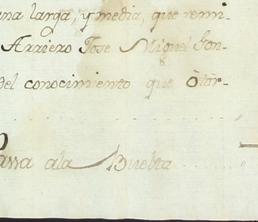 una larga, y media, que remi-
Arriero Jose Miguel Gon-
del conocimiento que Otor-
Passa ala Buelta